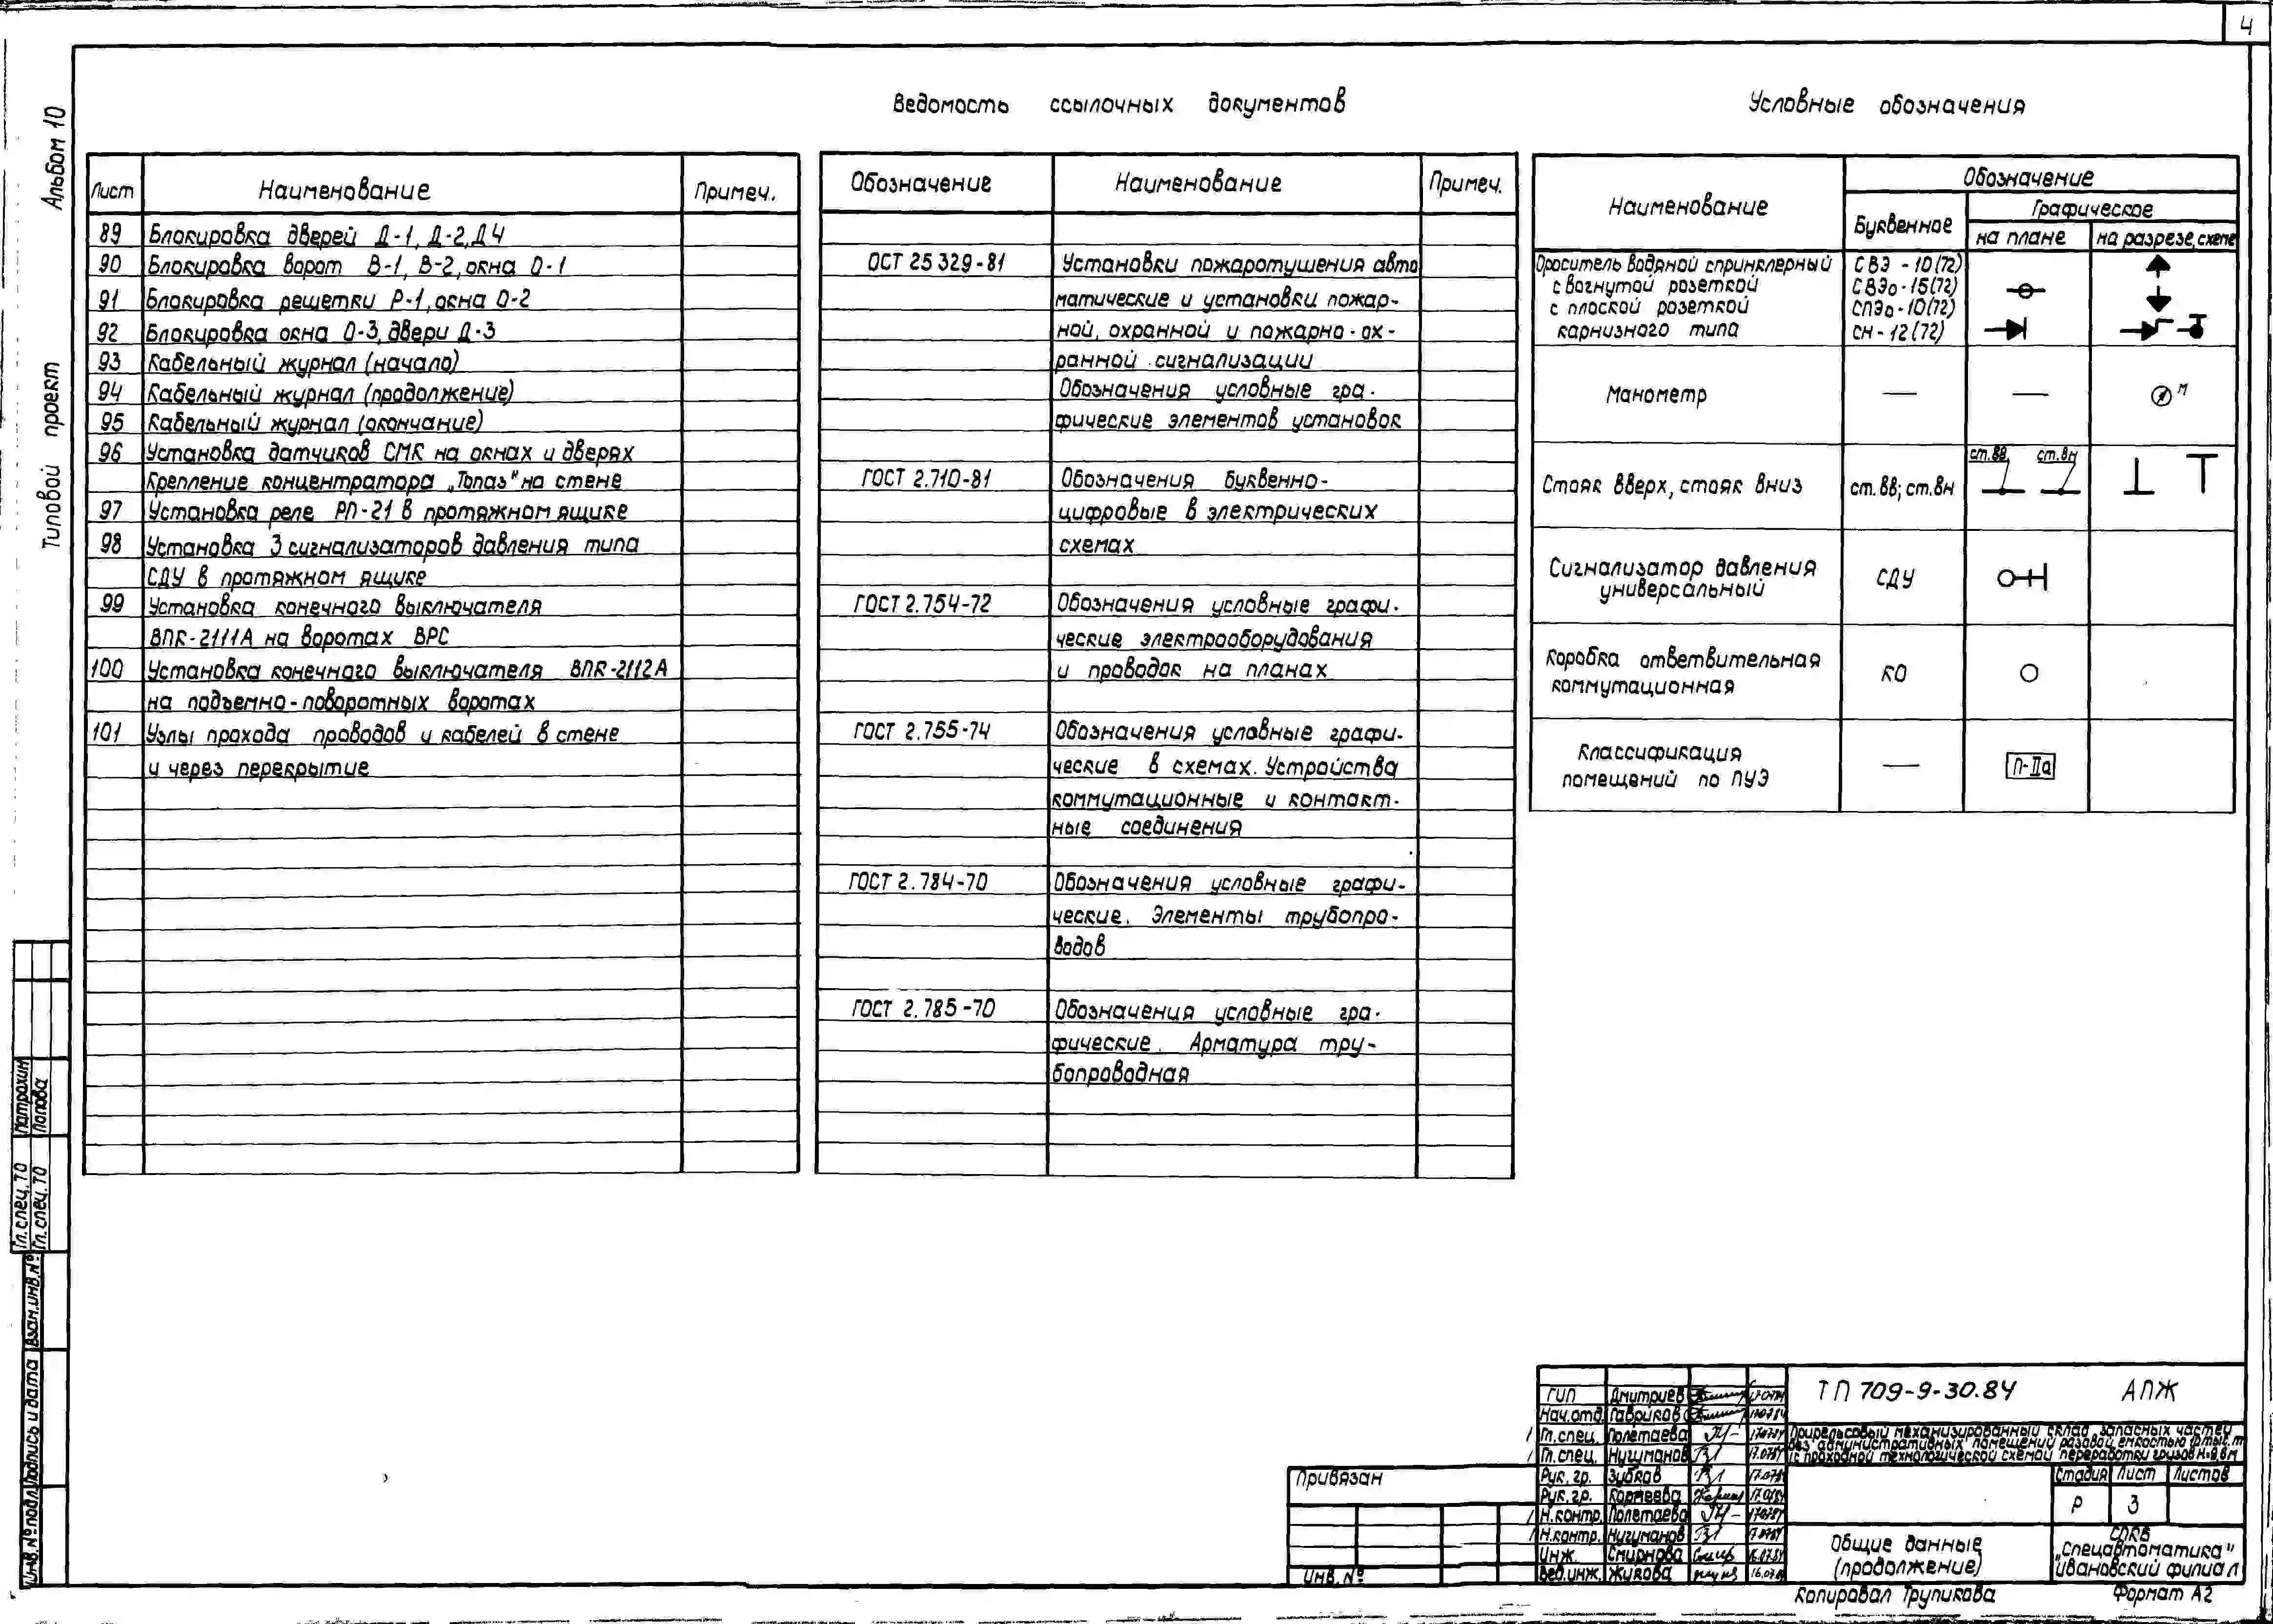 4
Альбом 10
Типовой проект
Лист Наименование Примеч.
89 Блокировка дверей Д-1, Д-2, Д4
90 Блокировка ворот В-1, В-2, окна О-1
91 Блокировка решетки Р-1, окна О-2
92 Блокировка окна О-3, двери Д-3
93 Кабельный журнал (начало)
94 Кабельный журнал (продолжение)
95 Кабельный журнал (окончание)
96 Установка датчиков СМК на окнах и дверях
Крепление концентратора „Топаз" на стене
97 Установка реле РП-21 в протяжном ящике
98 Установка 3 сигнализаторов давления типа
СДУ в протяжном ящике
99 Установка конечного выключателя
ВПК-2111А на воротах ВРС
100 Установка конечного выключателя ВПК-2112А
на подъемно-поворотных воротах
101 Узлы прохода проводов и кабелей в стене
и через перекрытие
Ведомость ссылочных документов
Обозначение Наименование Примеч.
ОСТ 25 329-81 Установки пожаротушения авто
матические и установки пожар-
ной, охранной и пожарно-ох-
ранной сигнализации
Обозначения условные гра-
фические элементов установок
ГОСТ 2.710-81 Обозначения буквенно-
цифровые в электрических
схемах
ГОСТ 2.754-72 Обозначения условные графи-
ческие электрооборудования
и проводок на планах
ГОСТ 2.755-74 Обозначения условные графи-
ческие в схемах. Устройства
коммутационные и контакт-
ные соединения
ГОСТ 2.784-70 Обозначения условные графи-
ческие. Элементы трубопро-
водов
ГОСТ 2.785-70 Обозначения условные гра-
фические. Арматура тру-
бопроводная
Условные обозначения
Наименование Обозначение
Буквенное Графическое
на плане на разрезе, схеме
Ороситель водяной спринклерный СВЭ-10(72)
с вогнутой розеткой СВЭо-15(72)
с плоской розеткой СПЭо-10(72)
карнизного типа СН-12(72)
Манометр — — М
Стояк вверх, стояк вниз ст.вв; ст.вн ст.вв ст.вн
Сигнализатор давления
универсальный СДУ
Коробка ответвительная
коммутационная КО
Классификация
помещений по ПУЭ — П-IIа
Гл.спец.ТО Матрохин
Гл.спец.ТО Попова
Инв.№подл. Подпись и дата Взам.инв.№
Привязан
Инв.№
ГИП Дмитриев
Нач.отд. Гавриков
Гл.спец. Полетаева
Гл.спец. Нугуманов
Рук.гр. Зубков
Рук.гр. Корнеева
Н.контр. Полетаева
Н.контр. Нугуманов
Инж. Смирнова
Вед.инж. Жукова
ТП 709-9-30.84 АПЖ
Прирельсовый механизированный склад запасных частей
без административных помещений разовой емкостью
с проходной технологической схемой переработки грузов
Стадия Лист Листов
Р 3
Общие данные
(продолжение)
СПКБ
„Спецавтоматика"
Ивановский филиал
Копировал Трупикова Формат А2